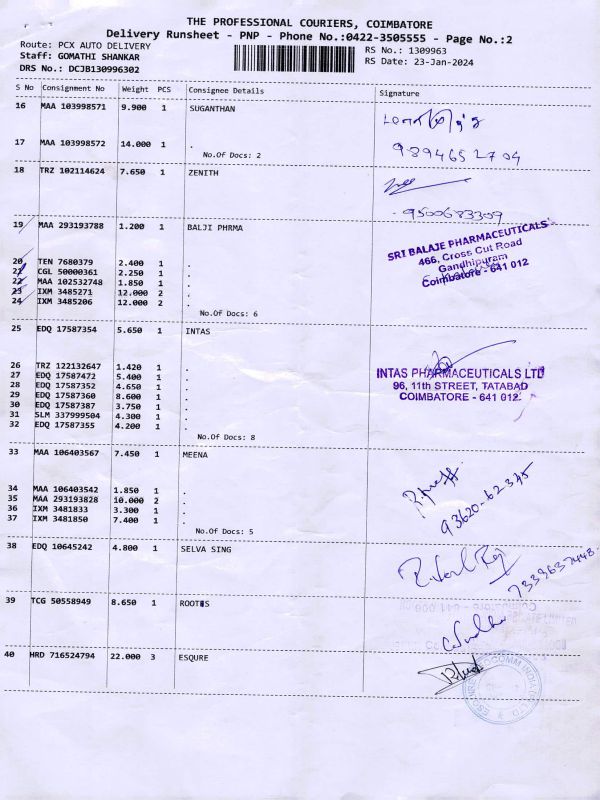 THE PROFESSIONAL COURIERS, COIMBATORE
Delivery Runsheet - PNP - Phone No.:0422-3505555 - Page No.:2
Route: PCX AUTO DELIVERY
RS No.: 1309963
Staff: GOMATHI SHANKAR
RS Date: 23-Jan-2024
DRS No.: DCJB130996302
S No Consignment No Weight PCS Consignee Details Signature
16 MAA 103998571 9.900 1 SUGANTHAN
17 MAA 103998572 14.000 1 .
No.Of Docs: 2
9894652704
18 TRZ 102114624 7.650 1 ZENITH
9500683309
19 MAA 293193788 1.200 1 BALJI PHRMA
SRI BALAJE PHARMACEUTICALS
466, Cross Cut Road
Gandhipuram
Coimbatore - 641 012
20 TEN 7680379 2.400 1 .
21 CGL 50000361 2.250 1 .
22 MAA 102532748 1.850 1 .
23 IXM 3485271 12.000 2 .
24 IXM 3485206 12.000 2 .
No.Of Docs: 6
25 EDQ 17587354 5.650 1 INTAS
INTAS PHARMACEUTICALS LTD
96, 11th STREET, TATABAD
COIMBATORE - 641 012.
26 TRZ 122132647 1.420 1 .
27 EDQ 17587472 5.400 1 .
28 EDQ 17587352 4.650 1 .
29 EDQ 17587360 8.600 1 .
30 EDQ 17587387 3.750 1 .
31 SLM 337999504 4.300 1 .
32 EDQ 17587355 4.200 1 .
No.Of Docs: 8
33 MAA 106403567 7.450 1 MEENA
34 MAA 106403542 1.850 1 .
35 MAA 293193828 10.000 2 .
36 IXM 3481833 3.300 1 .
37 IXM 3481850 7.400 1 .
No.Of Docs: 5
93620-62345
38 EDQ 10645242 4.800 1 SELVA SING
7339637448
39 TCG 50558949 8.650 1 ROOTS
40 HRD 716524794 22.000 3 ESQURE